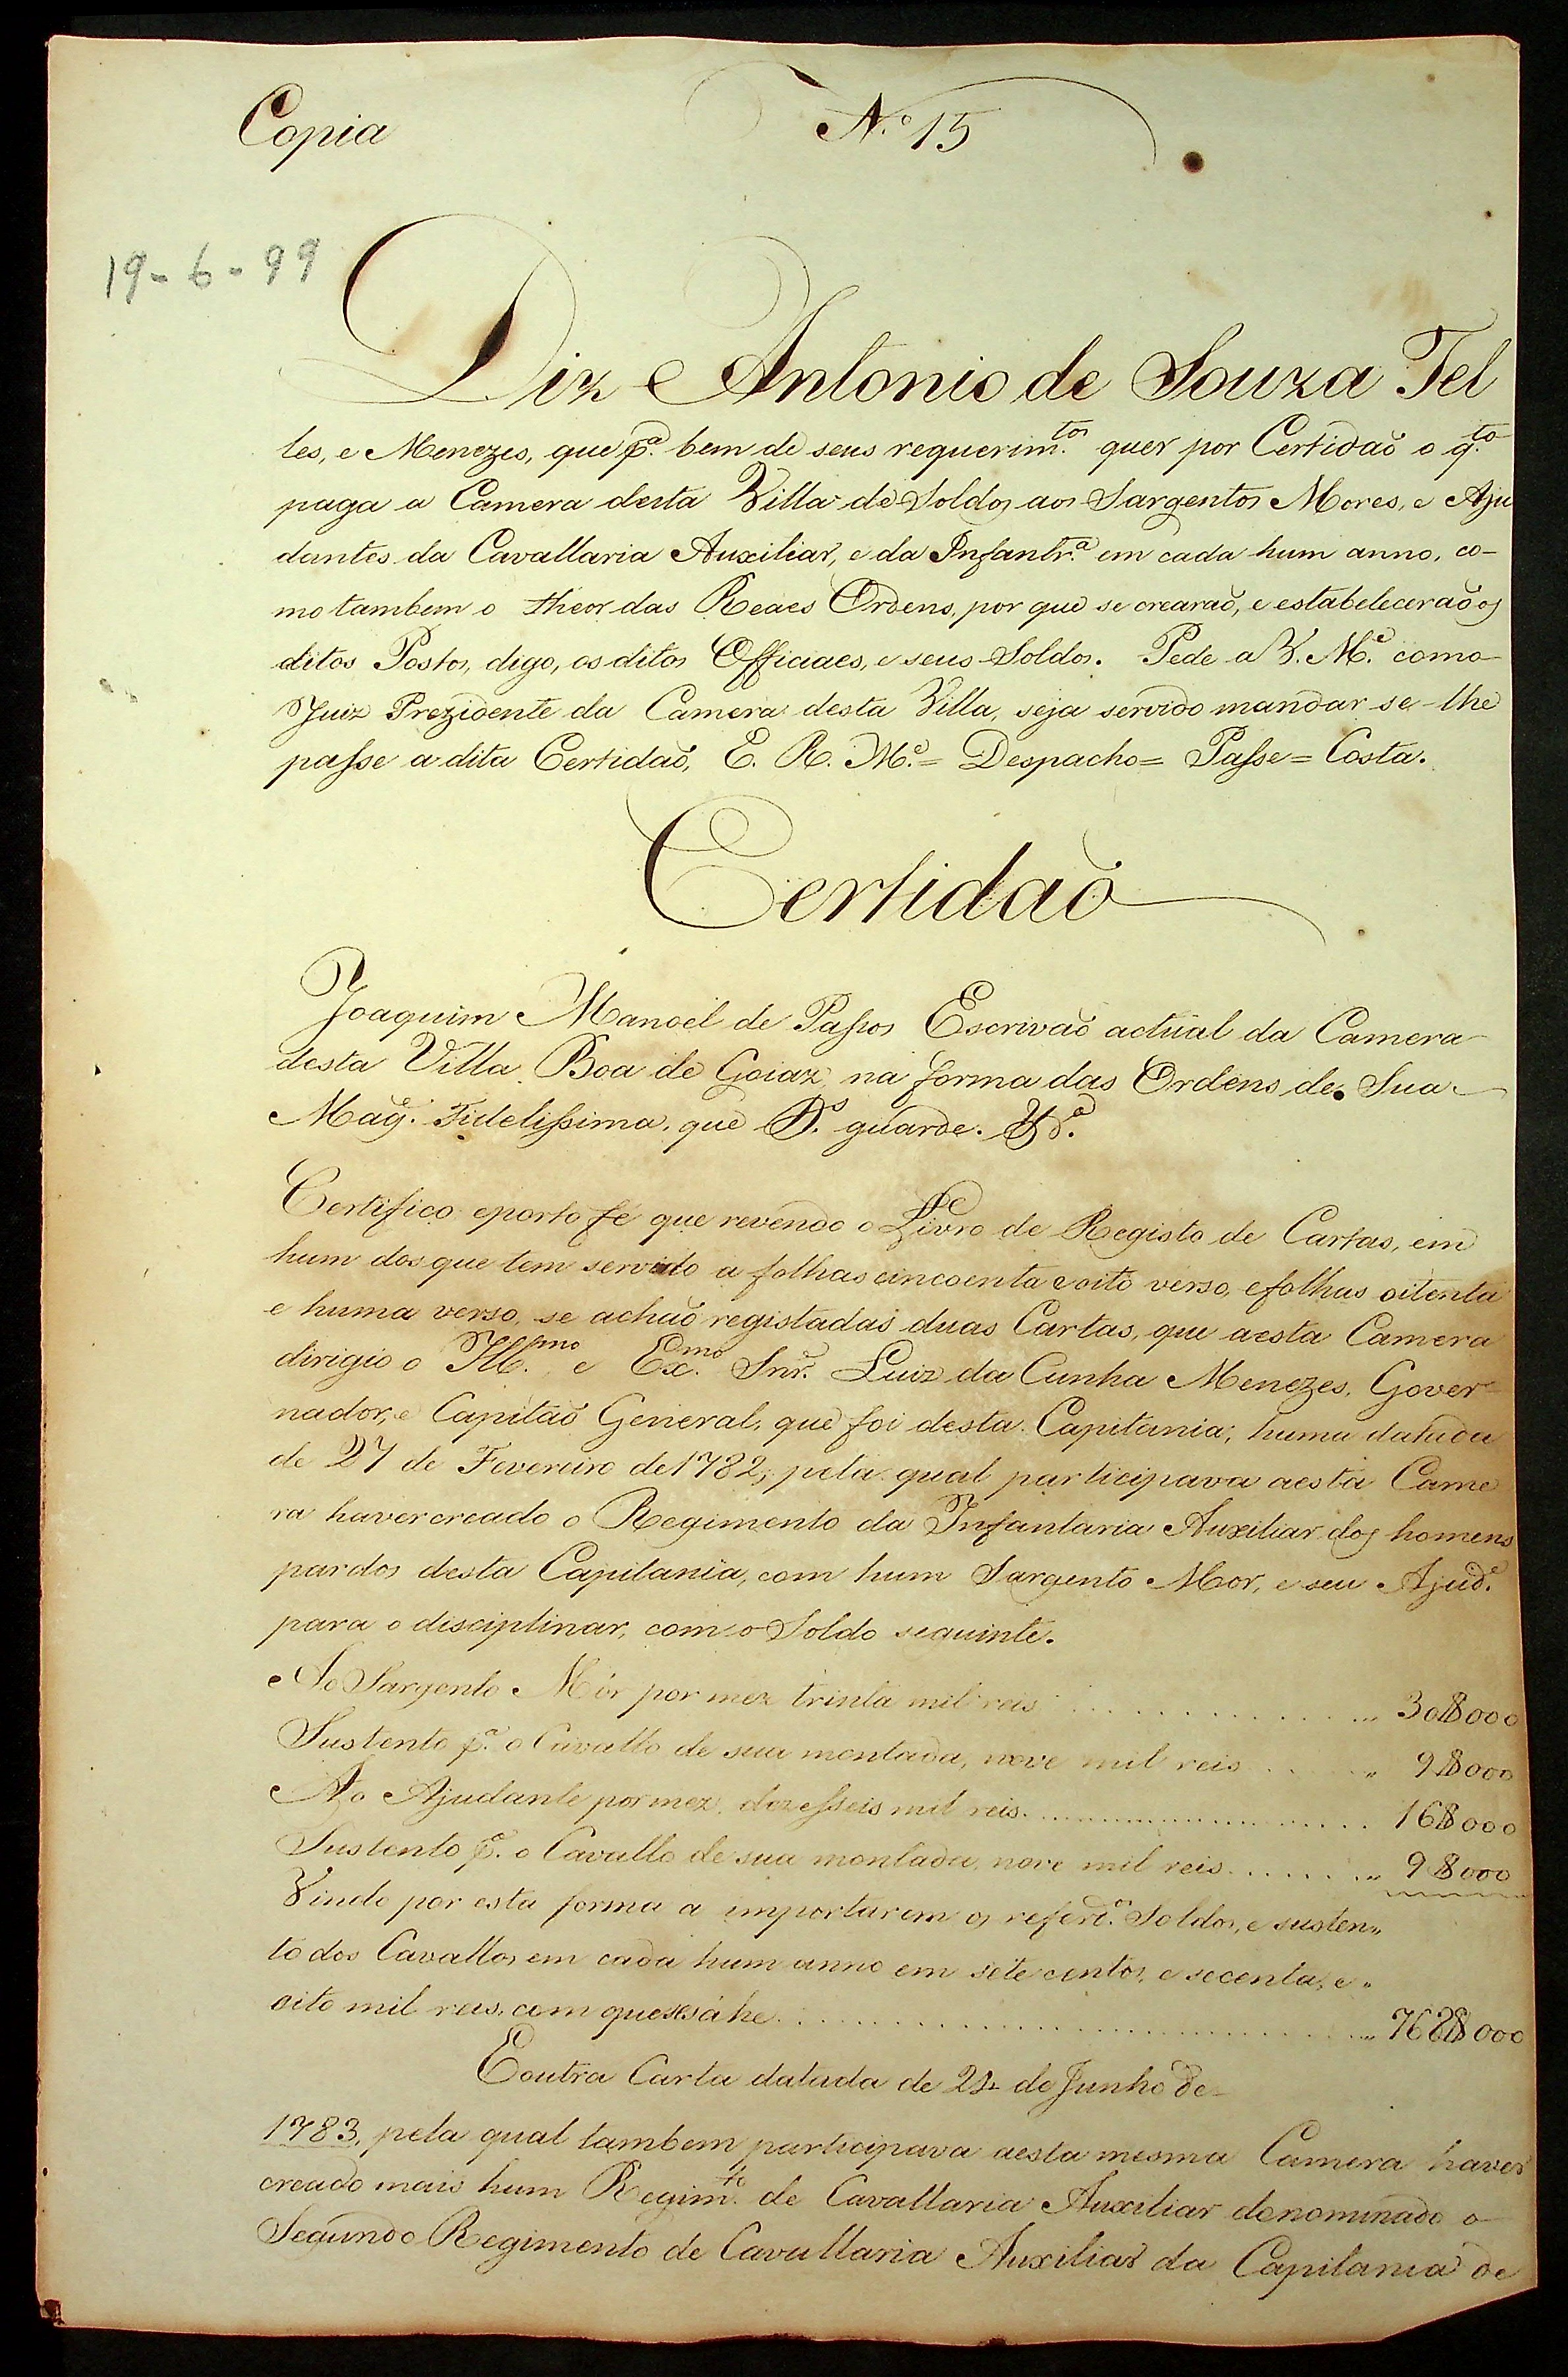 Copia
N.º 15
19-6-99
Diz Antonio de Souza Tel
les, e Menezes, que p.ª bem de seus requerim.tos quer por Certidaõ o q.to
paga a Camera desta Villa de Soldos aos Sargentos Mores, e Aju
dantes da Cavallaria Auxiliar, e da Infantr.ª em cada hum anno, co-
mo tambem o theor das Reaes Ordens, por que se crearaõ, e estabeleceraõ os
ditos Postos, digo, os ditos Officiaes, e seus Soldos. Pede a V. M.e como
Juiz Prezidente da Camera desta Villa, seja servido mandar se-lhe
passe a dita Certidaõ, E. R. M.e = Despacho = Passe = Costa.
Certidaõ
Joaquim Manoel de Passos Escrivaõ actual da Camera
desta Villa Boa de Goiaz, na forma das Ordens de Sua
Mag.e Fidelissima, que D.s guarde. &.ª
Certifico e porto fé que revendo o Livro de Registo de Cartas, em
hum dos que tem servido a folhas cincoenta e oito verso, e folhas oitenta
e huma verso, se achaõ registadas duas Cartas, que a esta Camera
dirigio o Ill.mo e Ex.mo Snr. Luiz da Cunha Menezes, Gover
nador, e Capitaõ General, que foi desta Capitania, huma datada
de 27 de Fevereiro de 1782, pela qual participava a esta Came
ra haver creado o Regimento da Infantaria Auxiliar dos homens
pardos desta Capitania, com hum Sargento Mor, e seu Ajud.e
para o disciplinar, com o Soldo seguinte.
Ao Sargento Mór por mez trinta mil reis ............. 30$000
Sustento p.ª o Cavallo de sua montada, nove mil reis ...... 9$000
Ao Ajudante por mez, dezesseis mil reis ................. 16$000
Sustento p.ª o Cavallo de sua montada, nove mil reis ....... 9$000
Vindo por esta forma a importarem os referd.os Soldos, e susten„
to dos Cavallos em cada hum anno em sete centos, e secenta, e„
oito mil reis, com que sáhe ............................... 768$000
E outra Carta datada de 24 de Junho de
1783, pela qual tambem participava a esta mesma Camera haver
creado mais hum Regim.to de Cavallaria Auxiliar denominado o
Segundo Regimento de Cavallaria Auxiliar da Capitania de